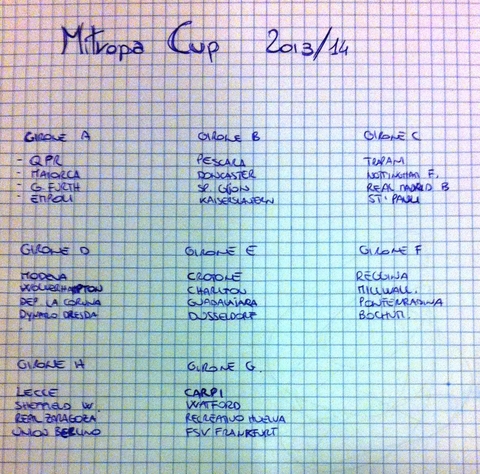 Mitropa Cup 2013/14
GIRONE A
- QPR
- MAIORCA
- G. FURTH
- EMPOLI
GIRONE B
PESCARA
DONCASTER
SP. GIJON
KAISERSLAUTERN
GIRONE C
TRAPANI
NOTTINGHAM F.
REAL MADRID B
ST. PAULI
GIRONE D
MODENA
WOLVERHAMPTON
DEP. LA CORUNA
DYNAMO DRESDA
GIRONE E
CROTONE
CHARLTON
GUADALAJARA
DUSSELDORF
GIRONE F
REGGINA
MILLWALL
PONFERRADINA
BOCHUM.
GIRONE H
LECCE
SHEFFIELD W.
REAL ZARAGOZA
UNION BERLINO
GIRONE G.
CARPI
WATFORD
RECREATIVO HUELVA
FSV FRANKFURT